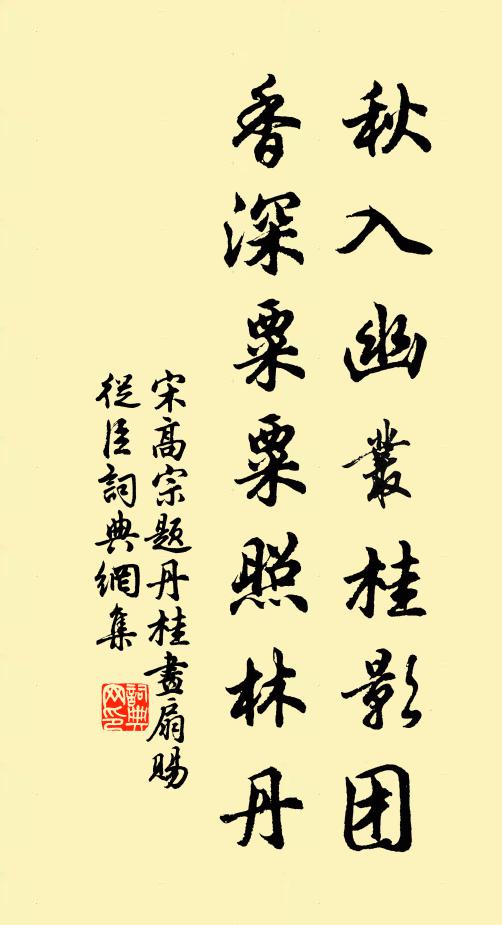 秋入幽叢桂影团
香深粟粟照林丹
宋高宗题丹桂畫扇賜
從臣詞典網集
詞典网印